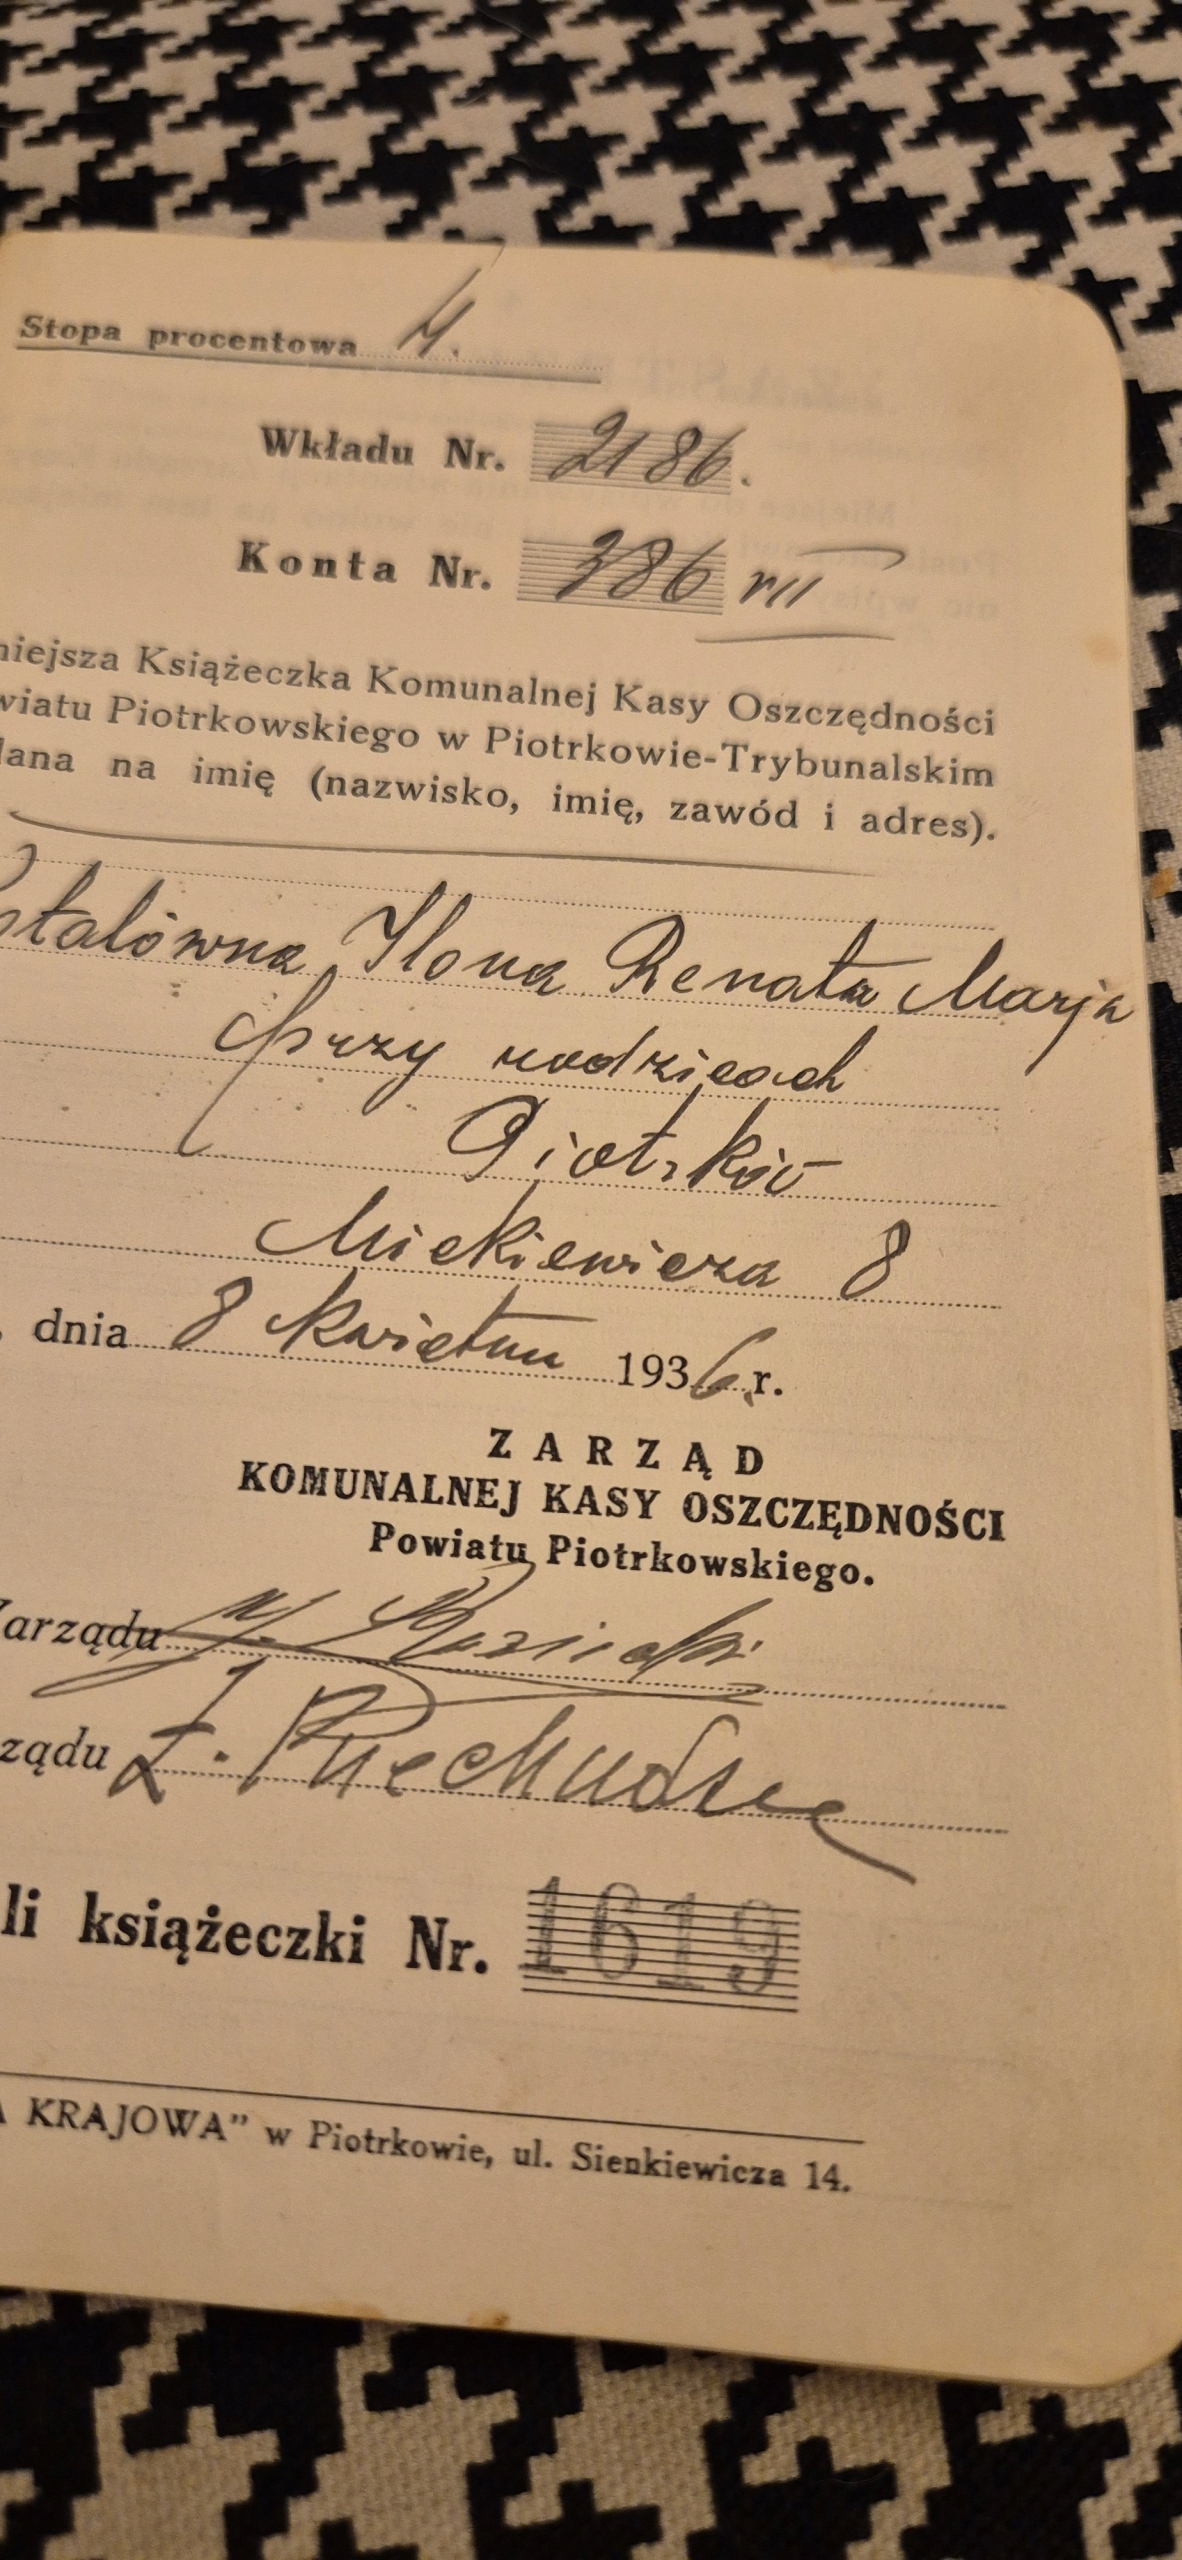 Stopa procentowa 4.
Wkładu Nr. 2186.
Konta Nr. 386 VII
niejsza Książeczka Komunalnej Kasy Oszczędności
wiatu Piotrkowskiego w Piotrkowie-Trybunalskim
dana na imię (nazwisko, imię, zawód i adres).
Ilona Renata Marja
przy rodzicach
Piotrków
Mickiewicza 8
dnia 8 kwietnia 1936 r.
ZARZĄD
KOMUNALNEJ KASY OSZCZĘDNOŚCI
Powiatu Piotrkowskiego.
Zarządu
ządu
li książeczki Nr. 1619
A KRAJOWA” w Piotrkowie, ul. Sienkiewicza 14.